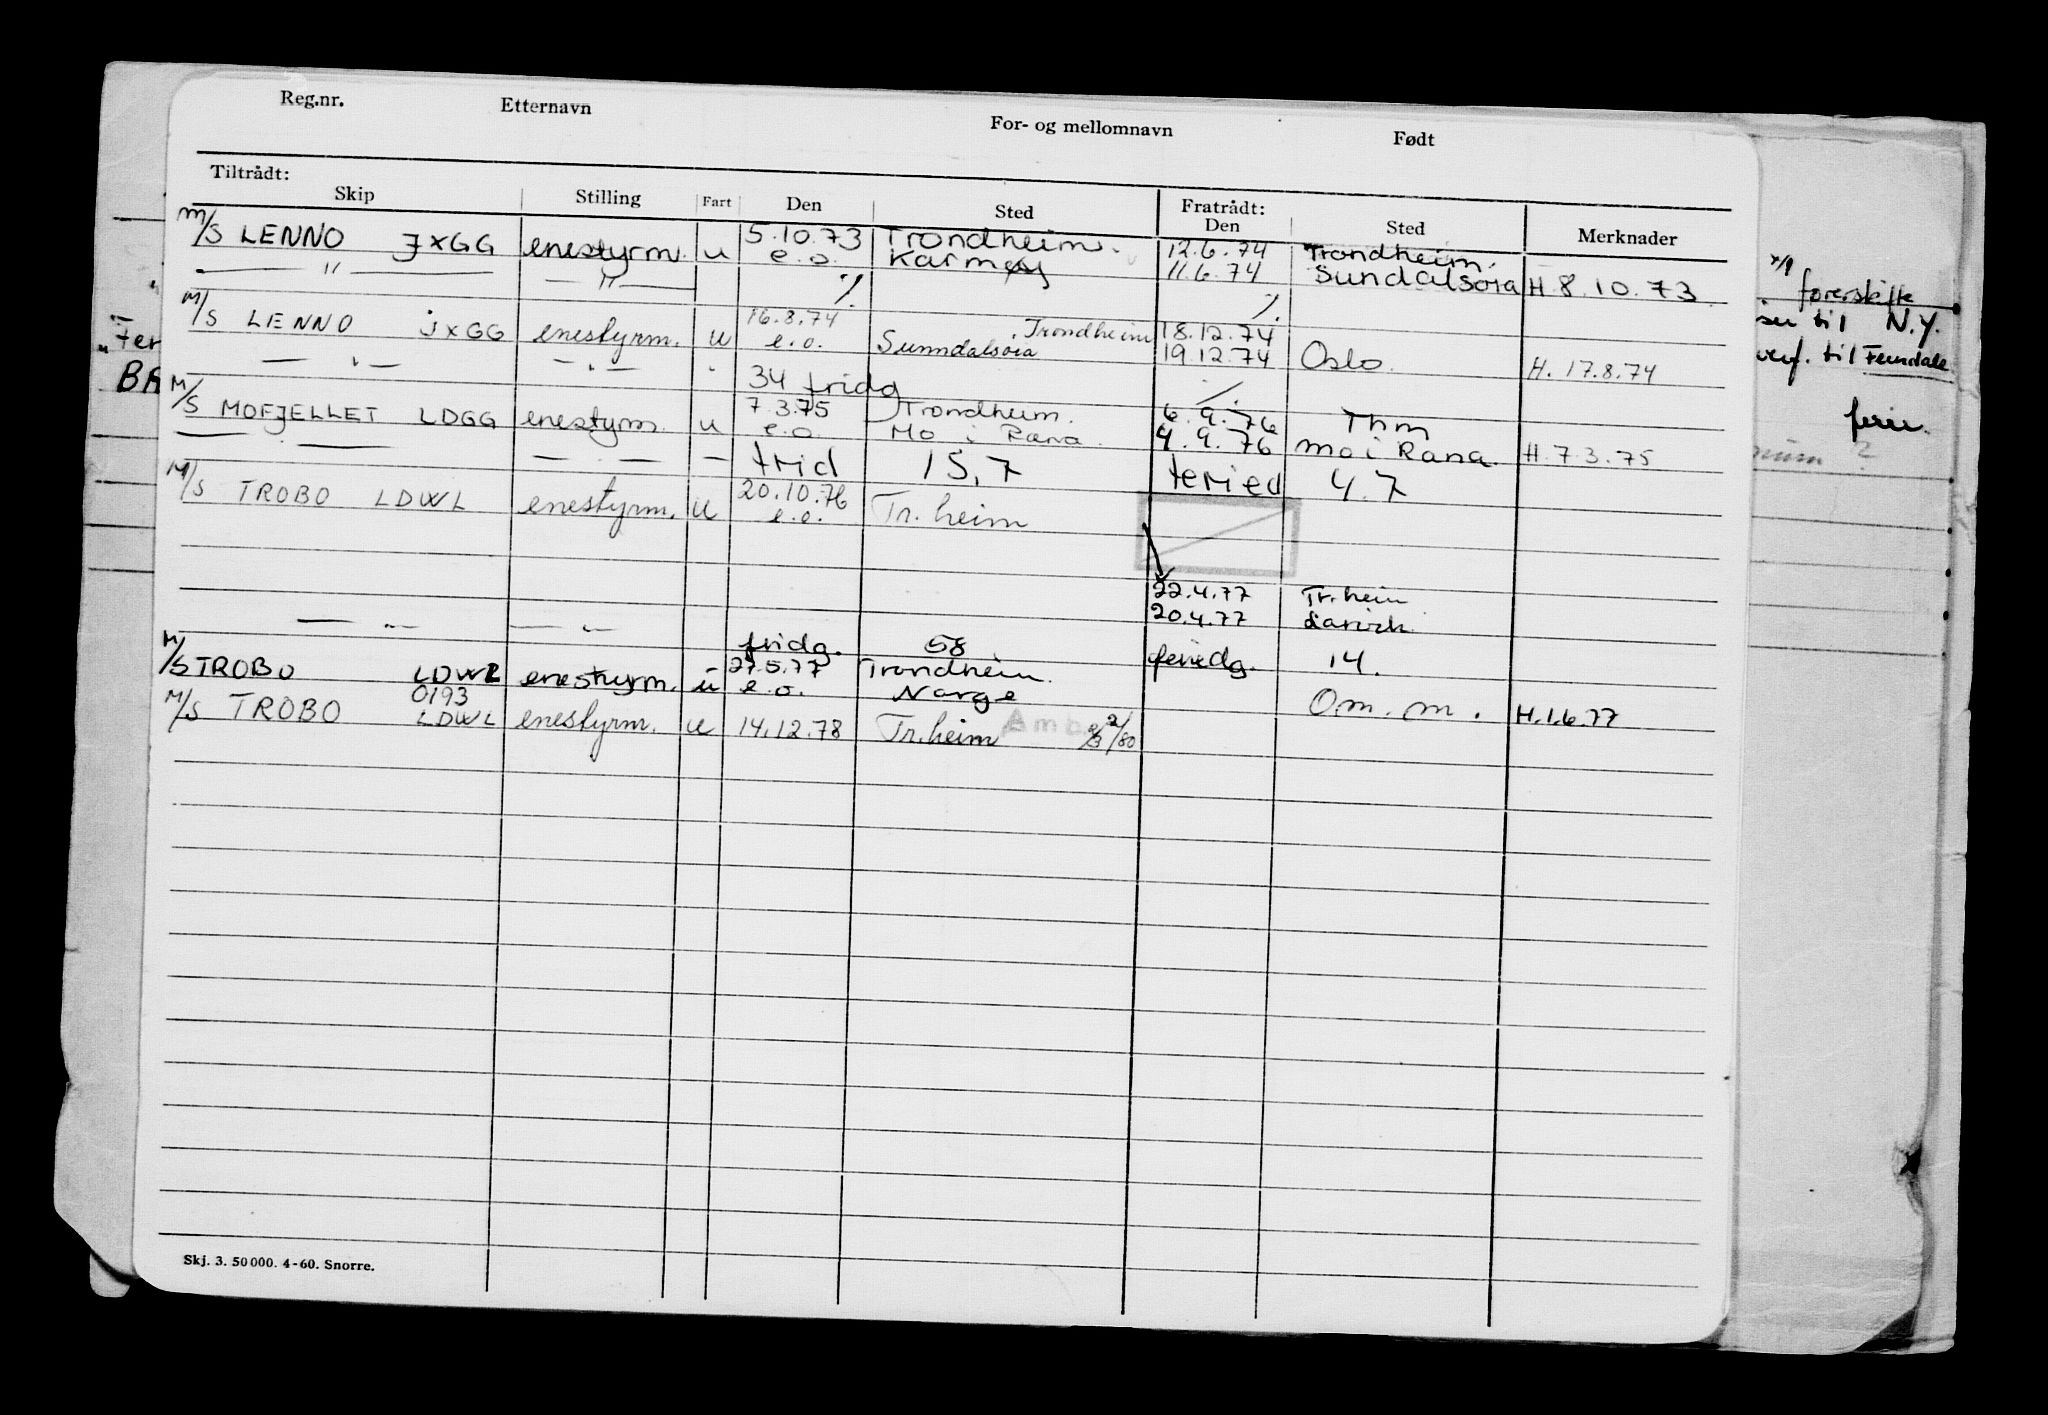 Reg.nr. Etternavn For- og mellomnavn Født
Tiltrådt: Fratrådt:
Skip Stilling Fart Den Sted Den Sted Merknader
M/S LENNO JXGG enestyrm. u 5.10.73 Trondheim. 12.6.74 Trondheim.
— " — — " — e.o. Karmøy 11.6.74 Sundalsøra H 8.10.73.
٪ ٪
M/S LENNO JXGG enestyrm. u 16.8.74 Trondheim 18.12.74
e.o. Sunndalsøra 19.12.74 Oslo. H. 17.8.74
34 fridg
M/S MOFJELLET LDGG enestyrm. u 7.3.75 Trondheim. 6.9.76 Thm
e.o. Mo i Rana. 4.9.76 Mo i Rana. H.7.3.75
frid 15,7 feried 4.7
M/S TROBO LDWL enestyrm. u 20.10.76
e.o. Tr.heim
22.4.77 Tr.heim
20.4.77 Larvik.
fridg. 58 feriedg. 14.
M/S TROBO LDWL enestyrm. u 27.5.77 Trondheim.
0193 e.o. Norge Om. m. H.1.6.77
M/S TROBO LDWL enestyrm. u 14.12.78 Tr.heim
Skj. 3. 50 000. 4-60. Snorre.
Fer
BR
førerskifte
til N.Y.
til Ferndale
ferie.